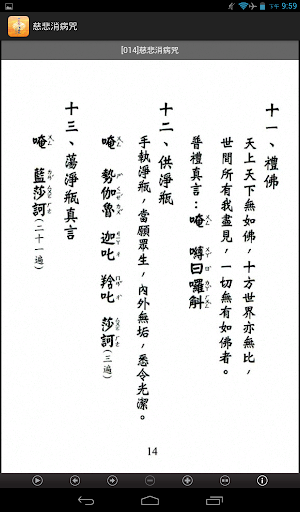 下午 9:59
慈悲消病咒
[014]慈悲消病咒
十一、禮佛
天上天下無如佛，十方世界亦無比，
世間所有我盡見，一切無有如佛者。
普禮真言：唵 嚩日囉斛
十二、供淨瓶
手執淨瓶，當願眾生，內外無垢，悉令光潔。
唵 勢伽魯 迦叱 羚叱 莎訶(三遍)
十三、蕩淨瓶真言
唵 藍莎訶(二十一遍)
14